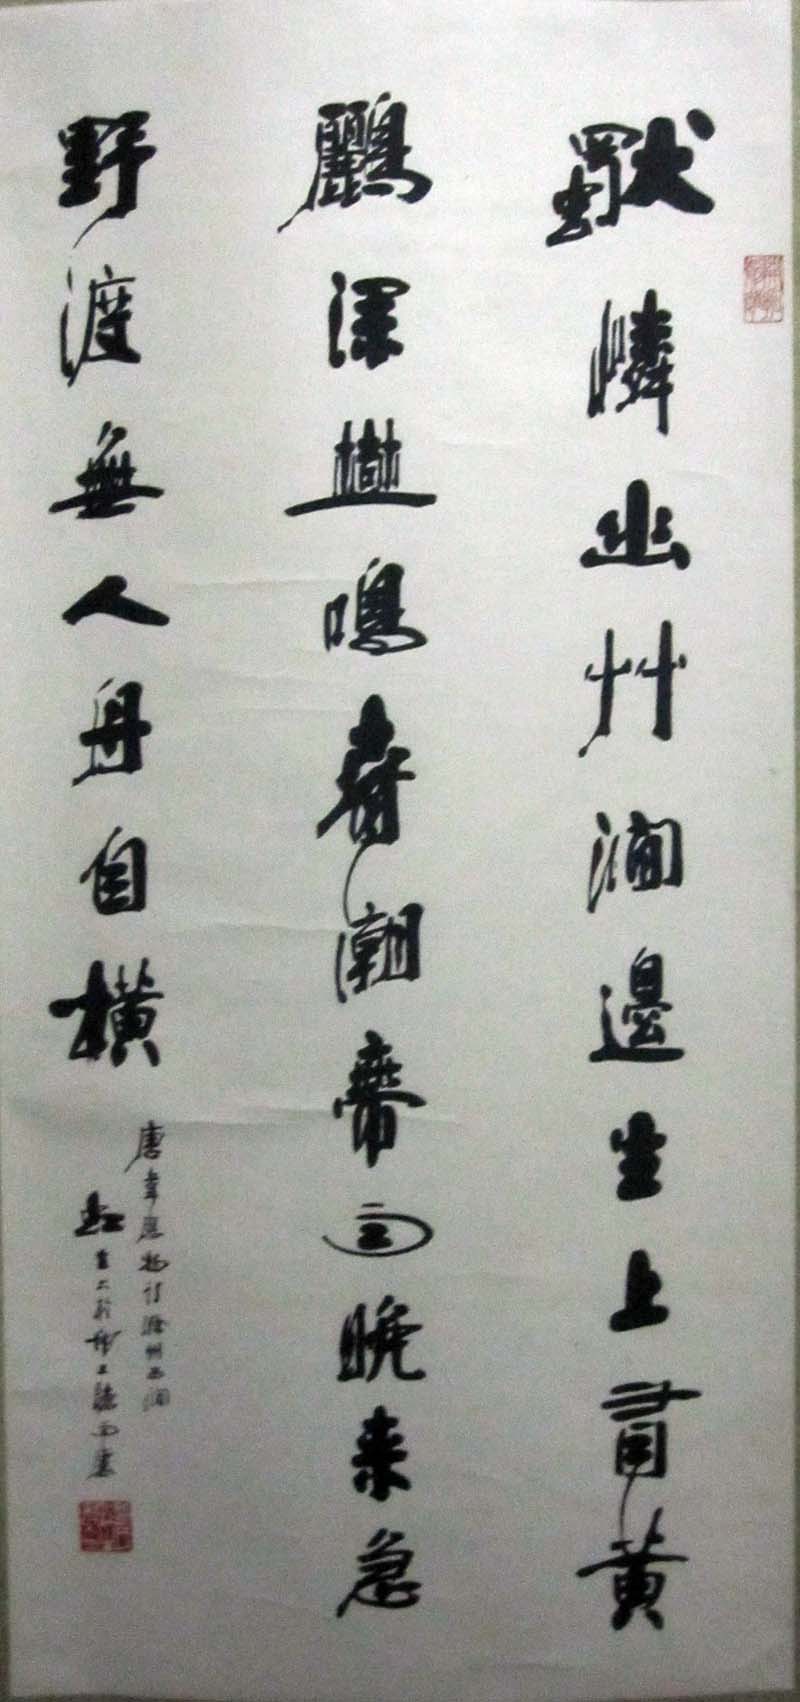 獨憐幽艸澗邊生上有黄
鸝深樹鳴春潮帶雨晚来急
野渡無人舟自橫
唐韋應物詩滁州西澗